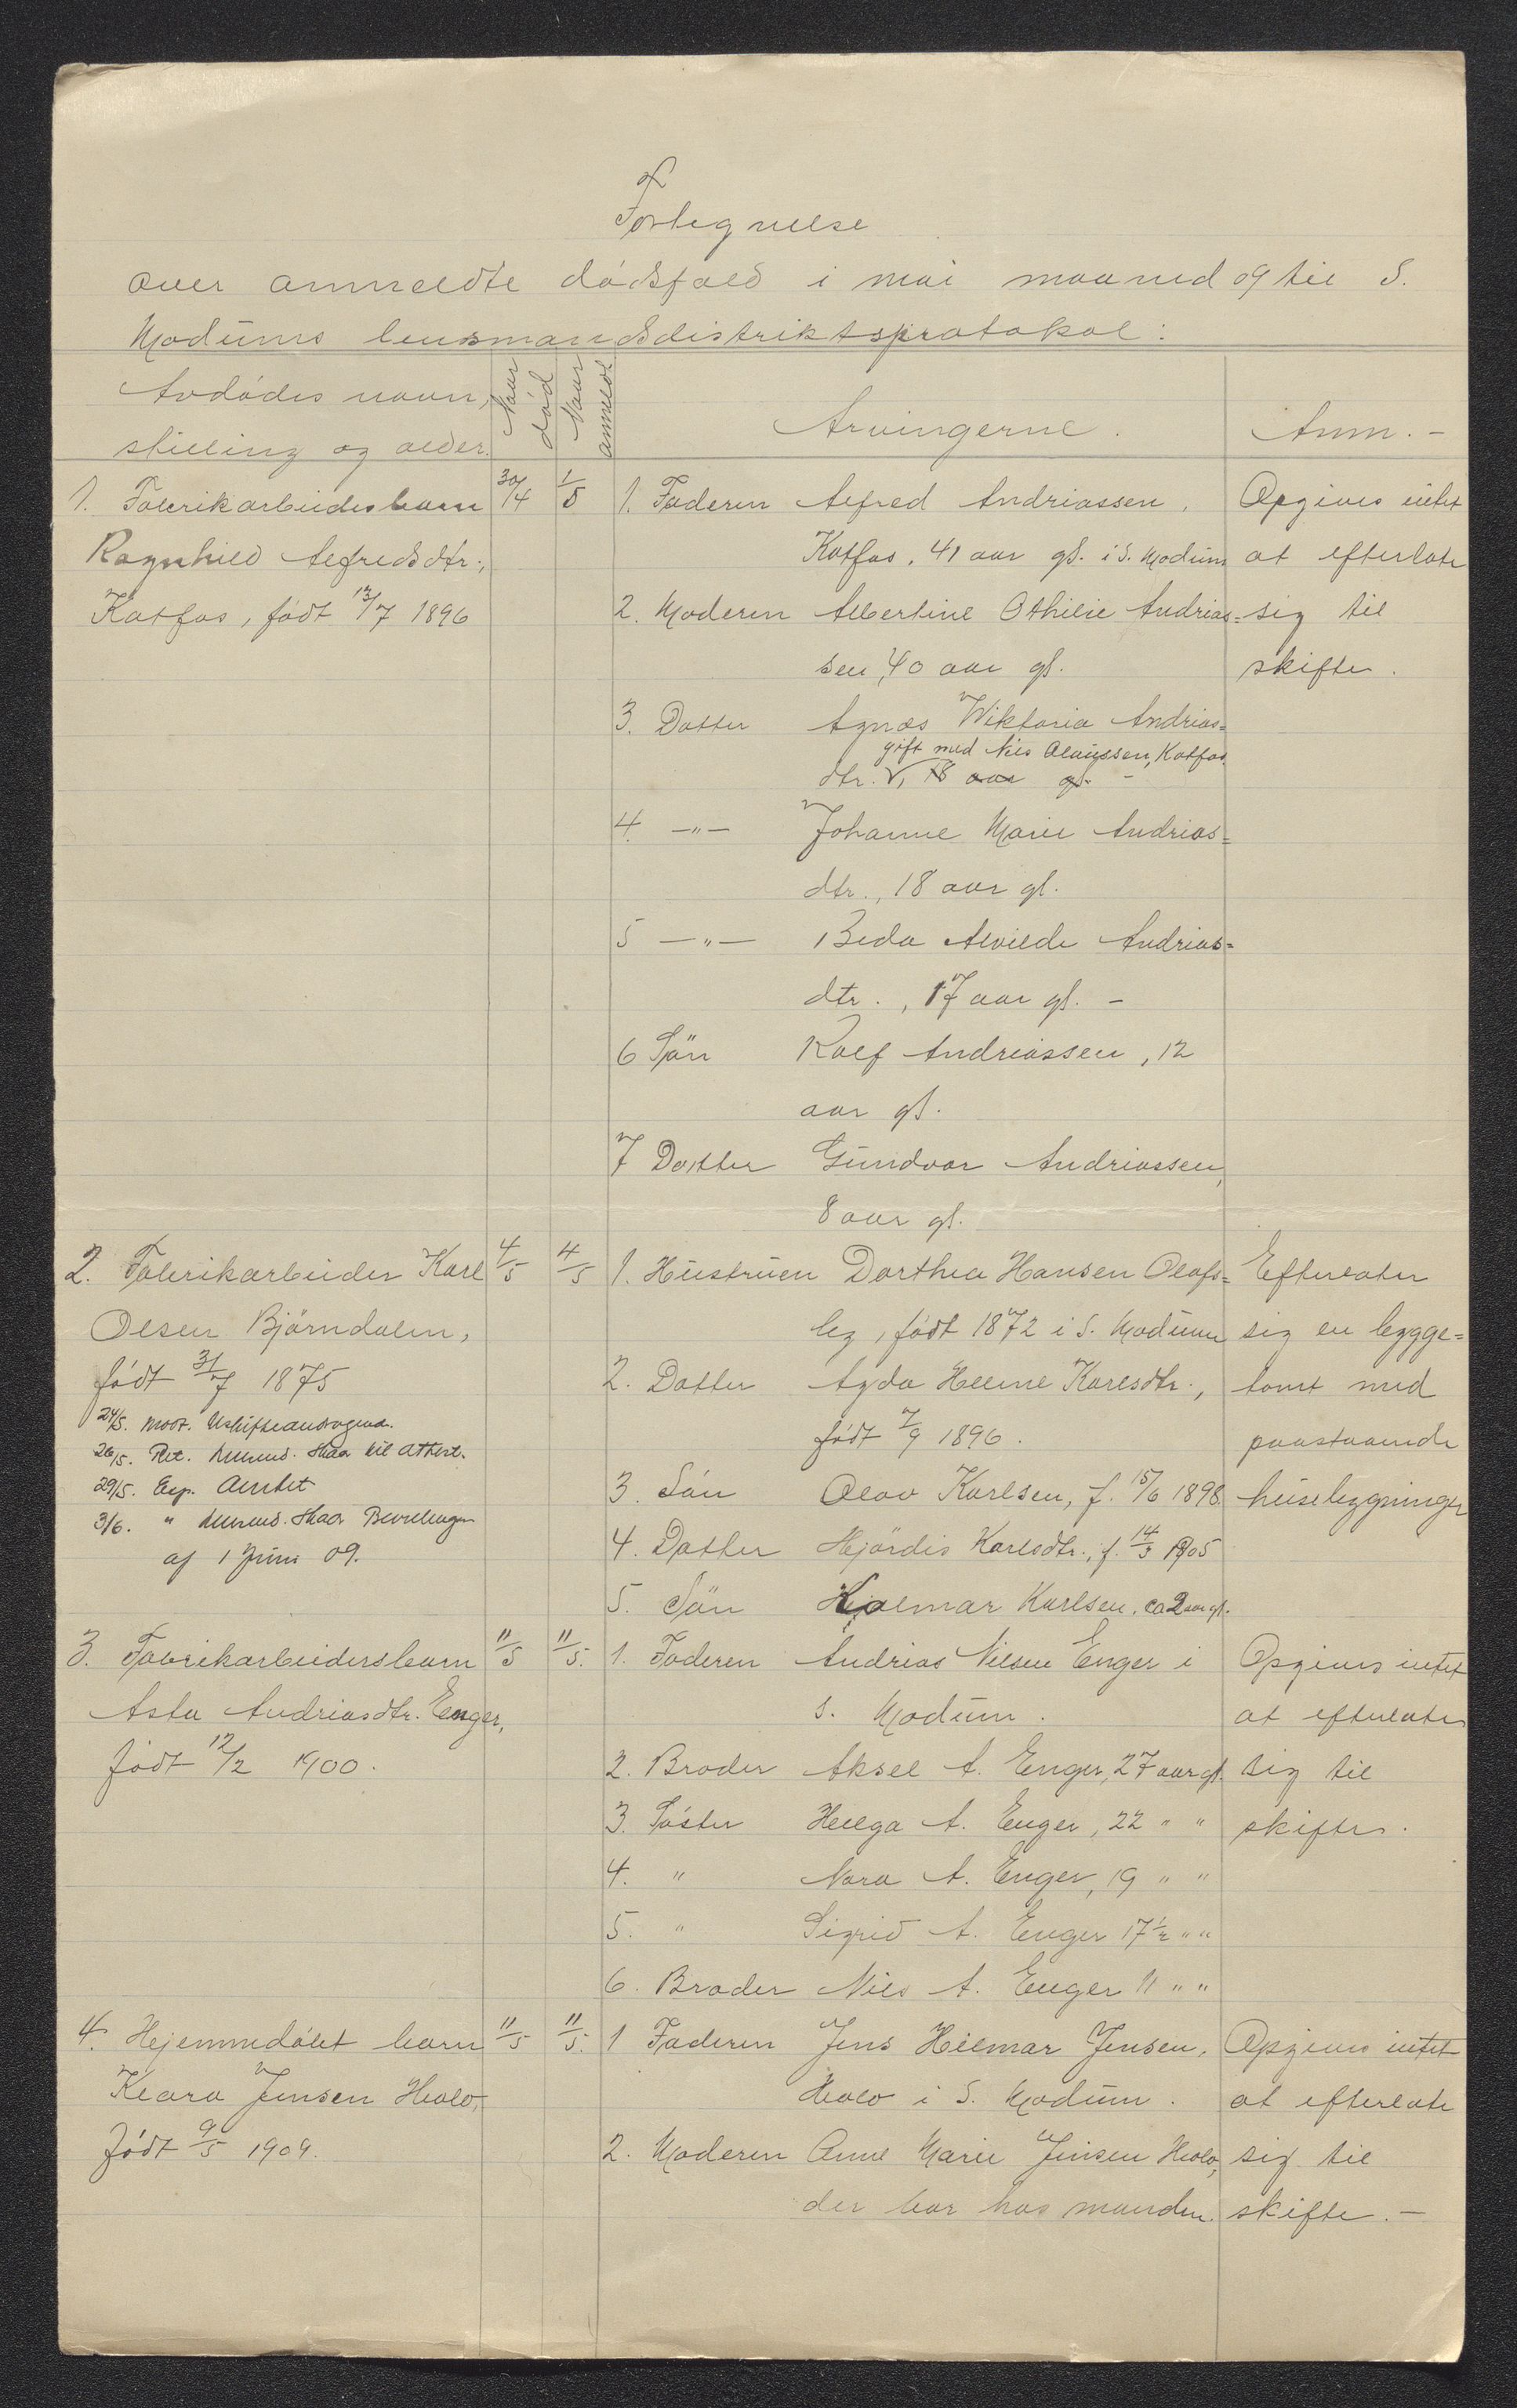 Fortegnelse
over anmeldte dødsfald i mai maaned 09 til S.
Modums lensmandsdistriktsprotokol:
Avdødes navn, stilling og alder.
Naar død
Naar anmeldt
Arvingerne.
Anm. -
1. Fabrikarbeidesbarn 30/4 1/5 1. Faderen Alfred Andriassen, Opgives intet
Ragnhild Alfredsdtr., Katfos, 41 aar gl. i S. Modum at efterlate
Katfos, født 13/7 1896 2. Moderen Albertine Othilie Andrias= sig til
sen, 40 aar gl. skifte.
3. Datter Agnæs Wiktoria Andrias=
gift med Nils Olaussen, Katfos
dtr. V, 18 aar gl. -
4. -"- Johanne Marie Andrias=
dtr., 18 aar gl.
5 -"- Beda Alvilde Andrias=
dtr., 17 aar gl. -
6 Søn Rolf Andriassen, 12
aar gl.
7 Datter Gundvor Andriassen,
8 aar gl.
2. Fabrikarbeider Karl 4/5 4/5 1. Hustruen Dorthea Hansen Olafs= Efterlater
Olsen Bjørndalen, leg, født 1872 i S. Modum sig en bygge=
født 31/7 1875 2. Datter Agda Helene Karlsdtr., tomt med
24/5. Mott. Uskifteandragend. født 7/9 1896. paastaaende
26/5. Ret. Lensmd. til Attest.
29/5. Exp. Amtet 3. Søn Olav Karlsen, f. 15/6 1898. husebygninger
3/6. " Lensmd. Bevillingen
af 1 Juni 09. 4. Datter Hjørdis Karlsdtr., f. 14/3 1905
5. Søn Hjalmar Karlsen, ca 2 aar gl.
3. Fabrikarbeidersbarn 11/5 11/5. 1. Faderen Andrias Nilsen Enger i Opgives intet
Asta Andriasdtr. Enger, S. Modum. at efterlate
født 12/2 1900. 2. Broder Aksel A. Enger, 27 aar gl. sig til
3. Søster Helga A. Enger, 22 " " skifte.
4. " Nora A. Enger, 19 " "
5. " Sigrid A. Enger 17 1/2 " "
6. Broder Nils A. Enger 11 " "
4. Hjemmedøbt barn 11/5 11/5. 1 Faderen Jens Hilmar Jensen, Opgives intet
Klara Jensen Hvalo, Hvalo i S. Modum. at efterlate
født 9/5 1909. 2. Moderen Anne Marie Jensen Hvalo, sig til
der bor hos manden. skifte. -